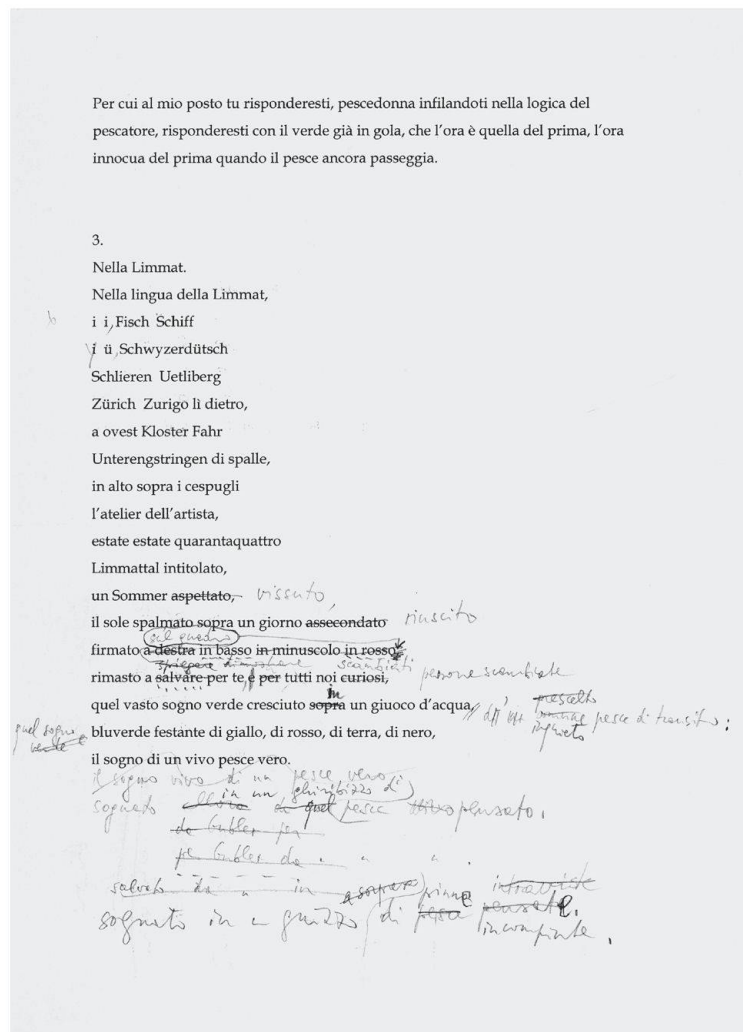 Per cui al mio posto tu risponderesti, pescedonna infilandoti nella logica del
pescatore, risponderesti con il verde già in gola, che l'ora è quella del prima, l'ora
innocua del prima quando il pesce ancora passeggia.
3.
Nella Limmat.
Nella lingua della Limmat,
i i, Fisch Schiff
i ü, Schwyzerdütsch
Schlieren Uetliberg
Zürich Zurigo lì dietro,
a ovest Kloster Fahr
Unterengstringen di spalle,
in alto sopra i cespugli
l'atelier dell'artista,
estate estate quarantaquattro
Limmattal intitolato,
un Sommer aspettato, vissuto,
il sole spalmato sopra un giorno assecondato riuscito
sul quadro
firmato a destra in basso in minuscolo in rosso,
scambiati persone scambiate
rimasto a salvare per te, e per tutti noi curiosi,
in
quel vasto sogno verde cresciuto sopra un giuoco d'acqua, prescelto
pesce di transito:
inquieto
quel sogno
verde
bluverde festante di giallo, di rosso, di terra, di nero,
il sogno di un vivo pesce vero.
il sogno vivo di un pesce vero
in un ghiribizzo di
sognato pesce pensato.
salvato da in pinne intraviste
sognato in guizzo di pensate
incompiute.